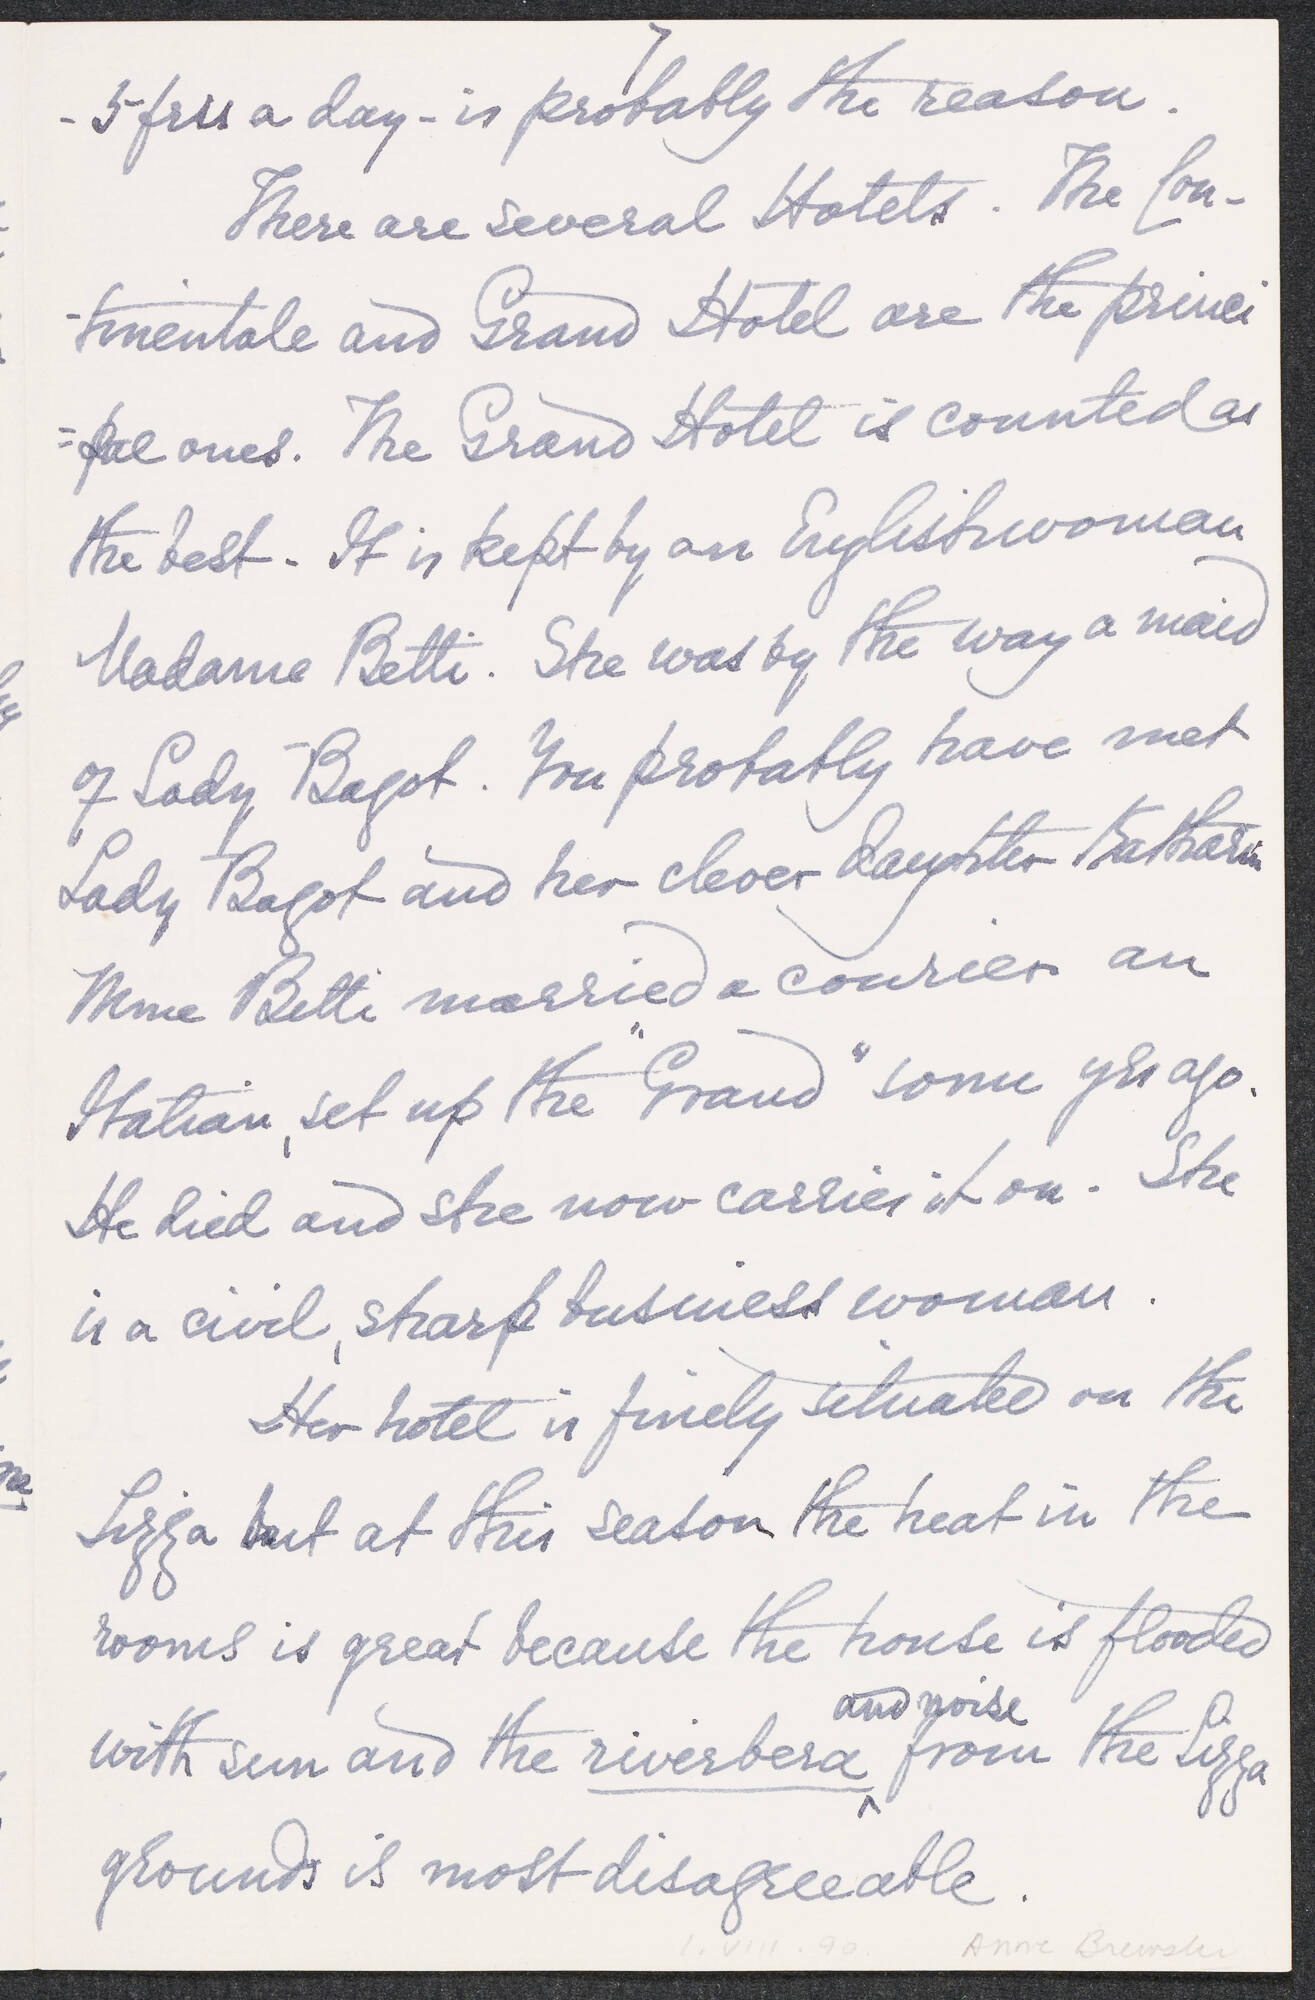 7
- 5 frss a day - is probably the reason.
There are several Hotels. The Con-
-tinentale and Grand Hotel are the princi
=pal ones. The Grand Hotel is counted as
the best - It is kept by an Englishwoman
Madame Betti. She was by the way a maid
of Lady Bagot. You probably have met
Lady Bagot and her clever daughter Katharin
Mme Betti married a courier an
Italian, set up the "Grand" some yrs ago.
He died and she now carries it on. She
is a civil, sharp business woman.
Her hotel is finely situated on the
Lizza but at this season the heat in the
rooms is great because the house is flooded
and noise
with sun and the riverbera ^ from the Lizza
grounds is most disagreeable.
1. VIII. 90. Anne Brewster